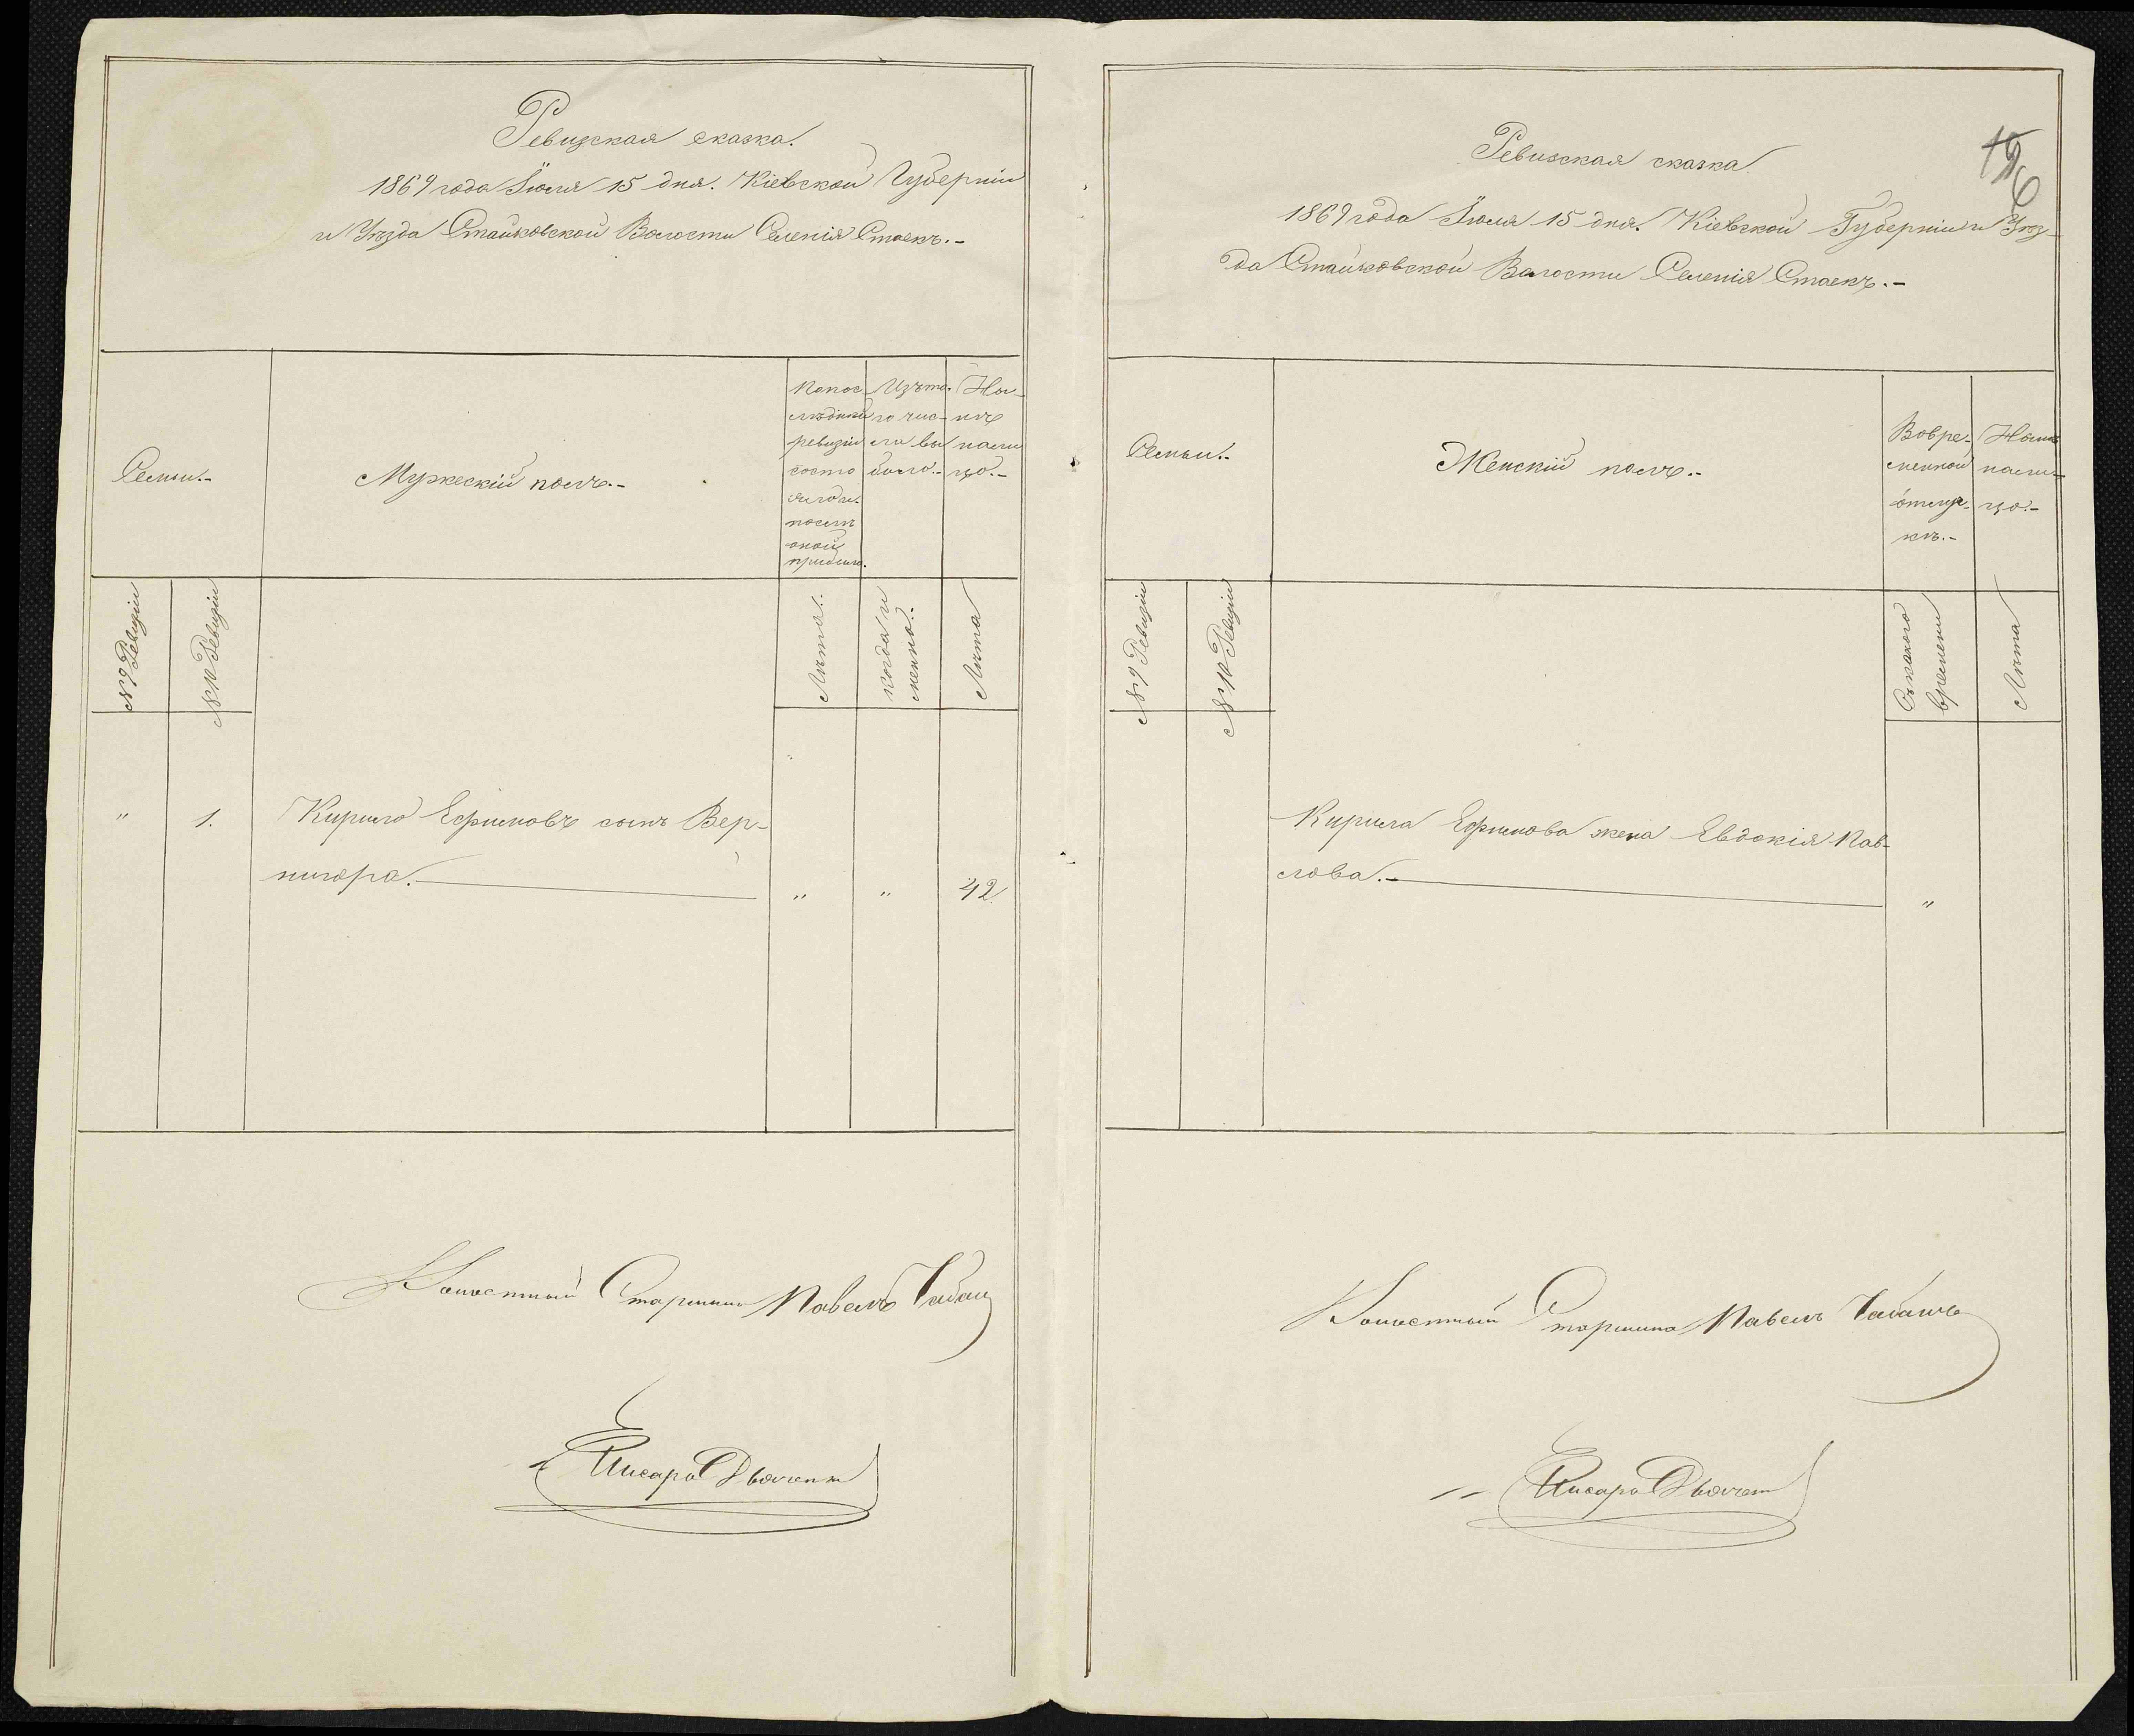 Ревизская сказка.
1869 года Іюля 15 дня. Кіевской Губерніи
и Уѣзда Стайковской Волости Селенія Стаекъ.-
Семьи.-
Мужескій полъ.-
По пос
лѣдней
ревизіи
состо
яло или
послѣ
оной
прибыло.
Изъ то-
го чис-
ла вы
было.-
Ны-
нѣ
на ли
цо.-
№ 9 Ревизіи
№ 10 Ревизіи
Лѣта.
когда и
менно.
Лѣта
" 1. Кирило Ефимовъ сынъ Вер-
нигора. " " 42
Волостный Старшина Павелъ Чабан
Писарь
Ревизская сказка
196
1869 года Іюля 15 дня. Кіевской Губерніи и Уѣз-
да Стайковской Волости Селенія Стаекъ.-
Семьи.-
Женскій полъ.-
Во вре-
менной
отлу-
кѣ.-
Нынѣ
на ли-
цо.-
№ 9 Ревизіи
№ 10 Ревизіи
Съ какого
времени
Лѣта
Кирила Ефимова жена Евдокія Пав-
лова.- "
Волостный Старшина Павелъ Чабанъ
Писарь